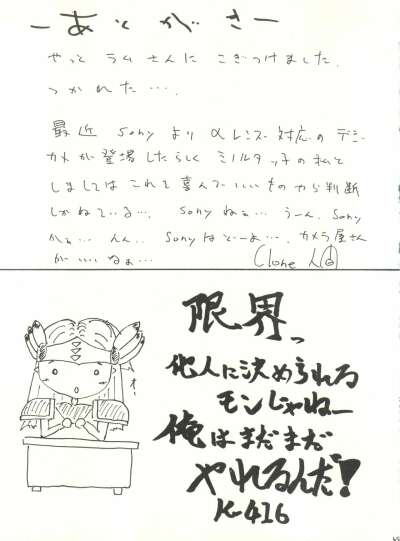 ーあとがきー
やっと ラムさんに こぎつけました。
つかれた…。
最近 Sony より αレンズ対応の デジ
カメが登場したらしく ミノルタッ子の私と
しましては これって喜んでいいものやら判断
しかねている…。 Sonyねぇ… うーん。Sony
かぁ… んん。 Sonyはどーよ…。カメラ屋さん
が いいなぁ…
Clone 人間
限界っ
他人に決められる
モンじゃねー
俺はまだまだ
やれるんだ!
K-416